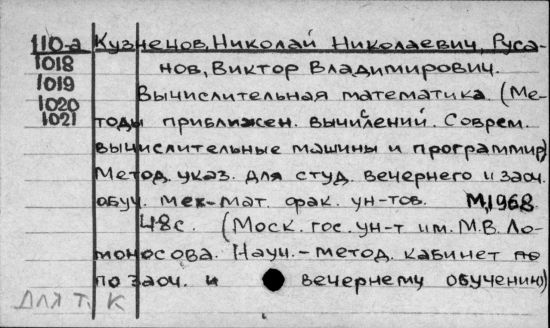 110-а Кузнецов, Николай Николаевич, Руса-
1018 нов, Виктор Владимирович.
1019 Вычислительная математика. (Ме-
1020
1021 тоды приближен. вычислений. Соврем.
вычислительные машины и программир)
Метод. указ. для студ. вечернего и заоч.
обуч. мех-мат. фак. ун-тов. М,1968
48с. (Моск. гос. ун-т им. М.В. Ло-
моносова. Науч.-метод. кабинет по
по заоч. и вечернему обучению)
Для т. К